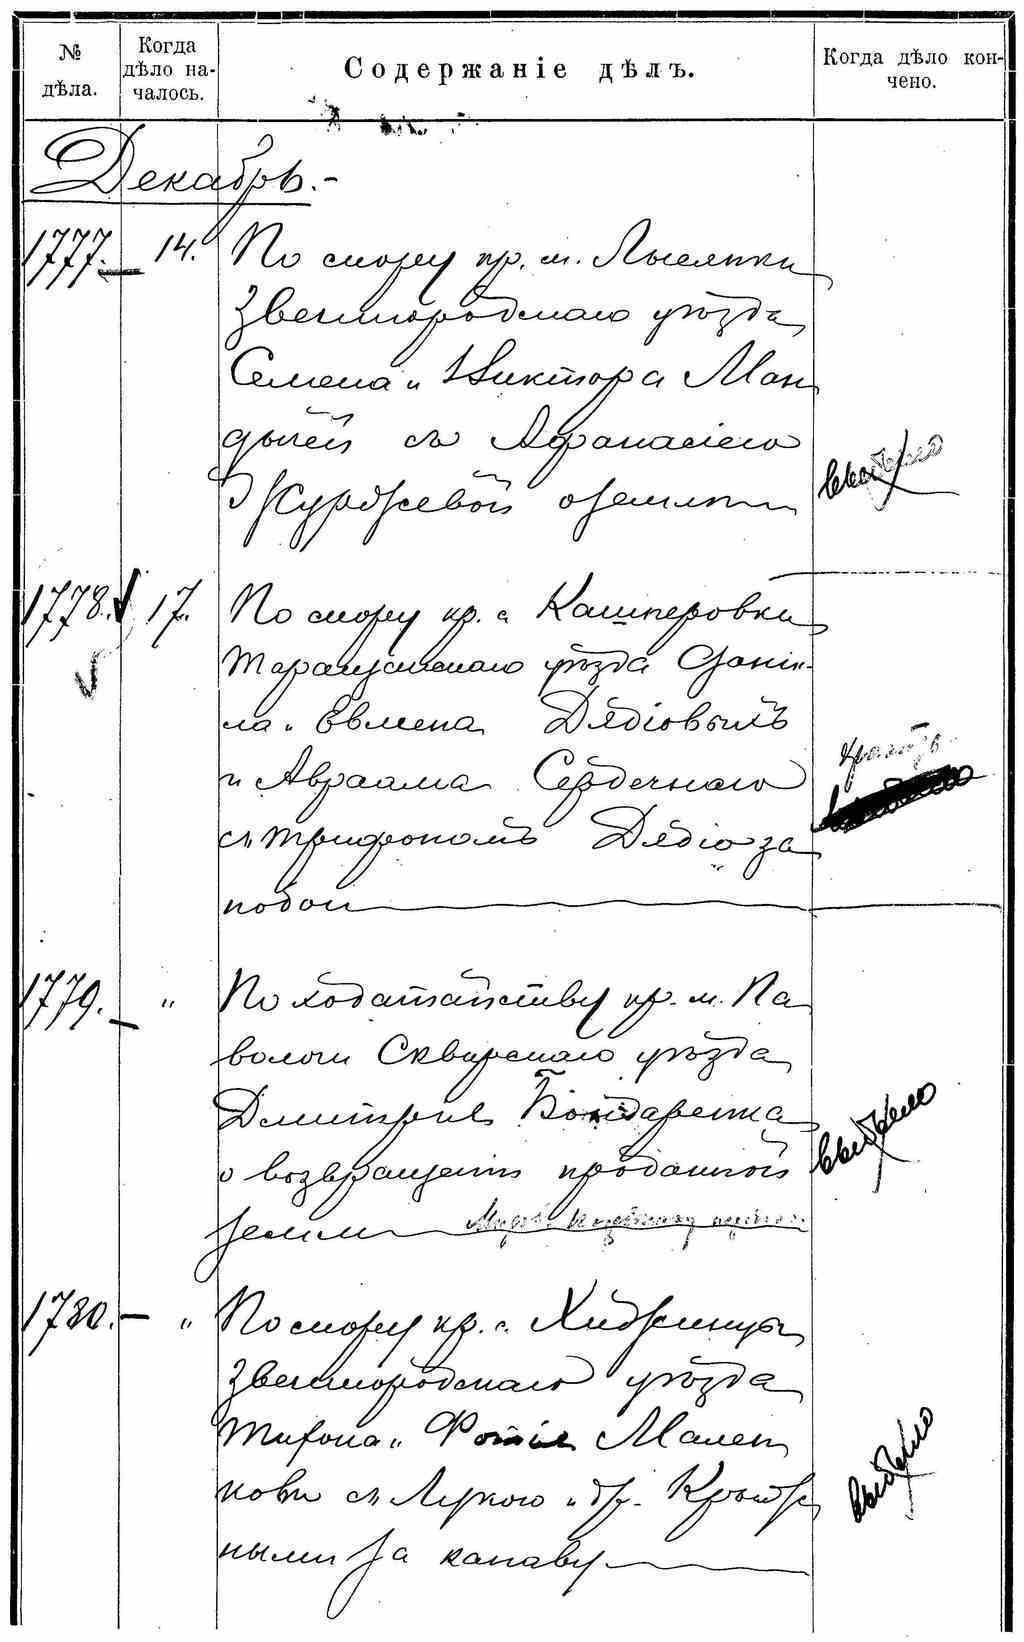 № дѣла.
Когда дѣло началось.
Содержаніе дѣлъ.
Когда дѣло кончено.
Декабрь.-
1777. 14. По спору кр. м. Лысянки
Звенигородскаго уѣзда
Семена и Виктора Ман
дычей съ Афанасіею
Журбжевой о землѣ
выбыло
1778. 17. По спору кр. с. Кашперовки
Таращанскаго уѣзда Даніи-
ла и Евмена Дядіовымъ
и Авраама Сердечнаго
съ Трифономъ Дядіо за
побои
1779. " По ходатайству кр. м. Па
волочи Сквирскаго уѣзда
Дмитрія Бондаренка
о возвращеніи проданной
земли
выбыло
1780. " По спору кр. с. Хижинцы
Звенигородскаго уѣзда
Тихона и Фотія Мален
ковы съ Лукою и др.
ными за канаву
выбыло